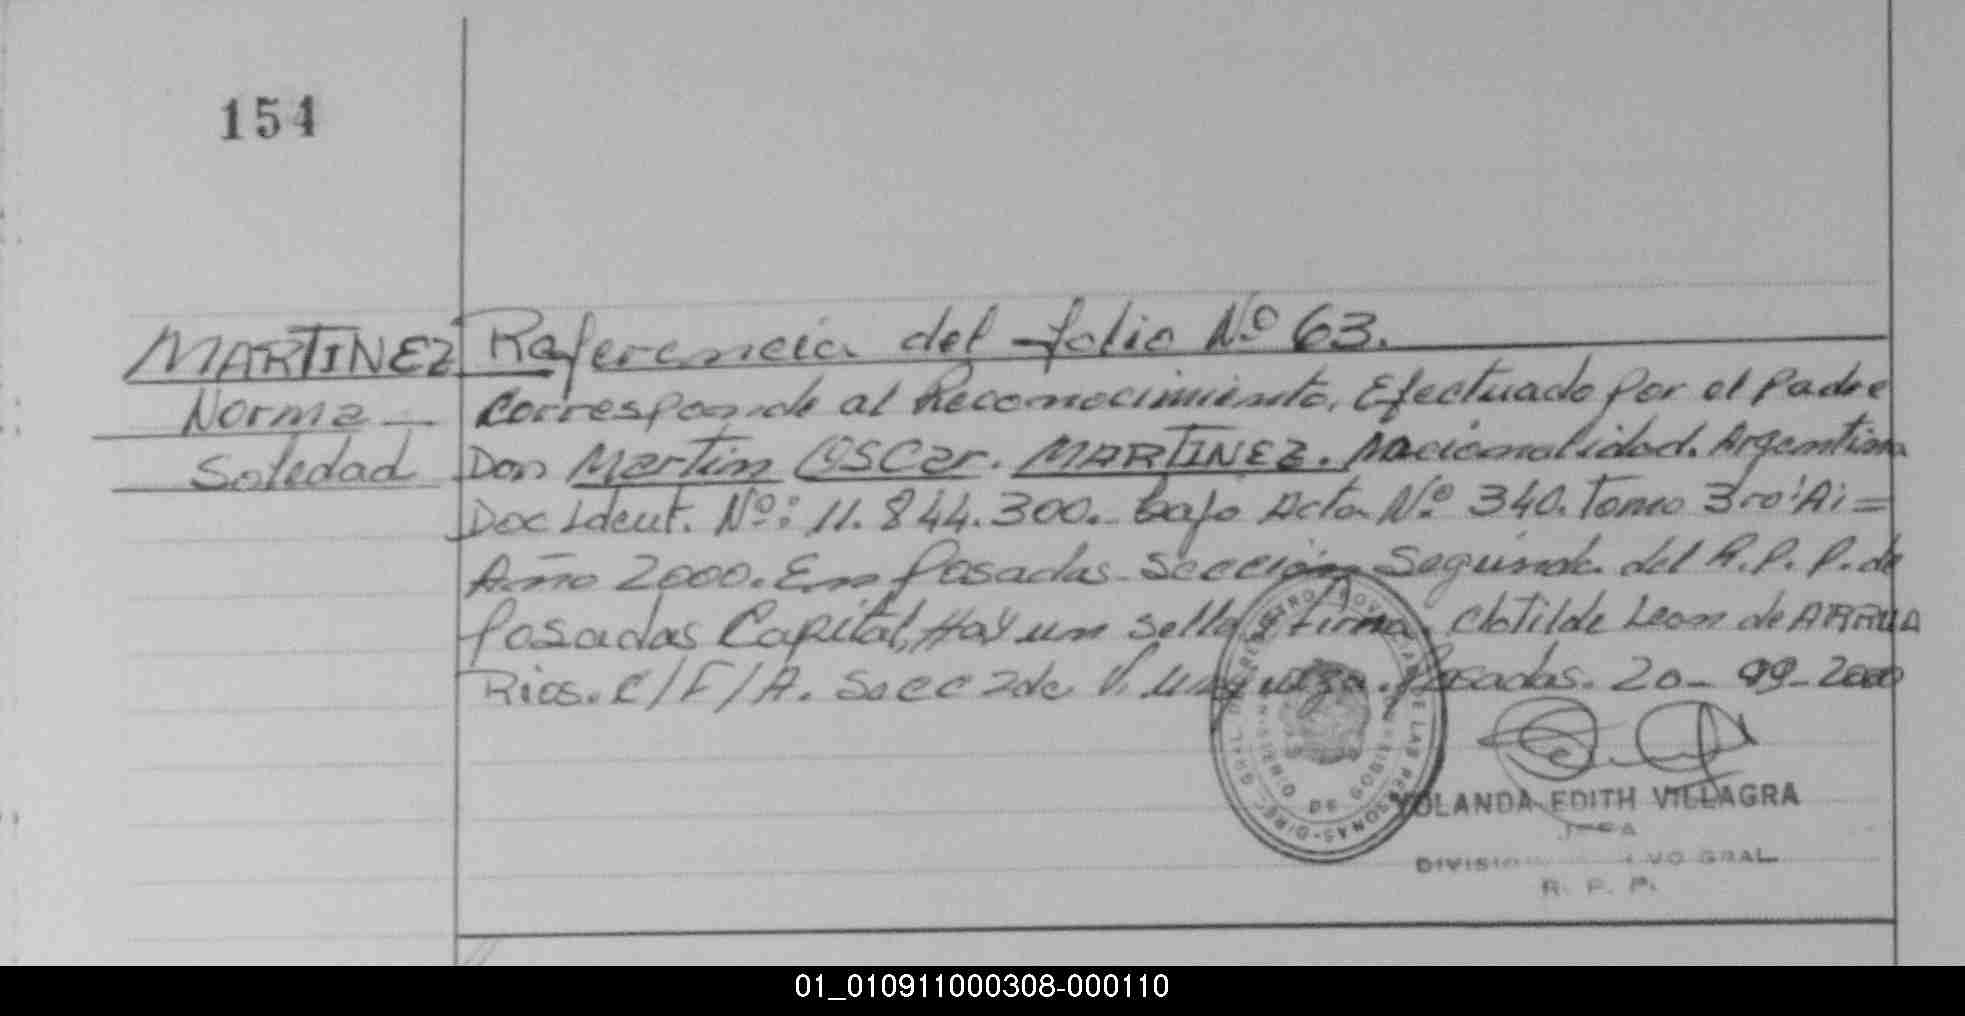 154
MARTINEZ
Norma
Soledad
Referencia del folio Nº 63.
Corresponde al Reconocimiento. Efectuado por el Padre
Don Martin OSCar. MARTINEZ. Nacionalidad. Argentina
Doc Ident. Nº: 11.844.300. bajo Acta Nº 340. Tomo 3ro
Año 2000. En Posadas Sección Segunda del R.P.P. de
Posadas Capital, Hay un sello firma Clotilde Leon de ARRUA
Rios. Secc 2da Posadas. 20-09-2000
DIREC. GRAL. DE REGISTRO PROVINCIAL DE LAS PERSONAS
MINISTERIO DE GOBIERNO
YOLANDA EDITH VILLAGRA
JEFA
GRAL
R. P. P.
01_010911000308-000110